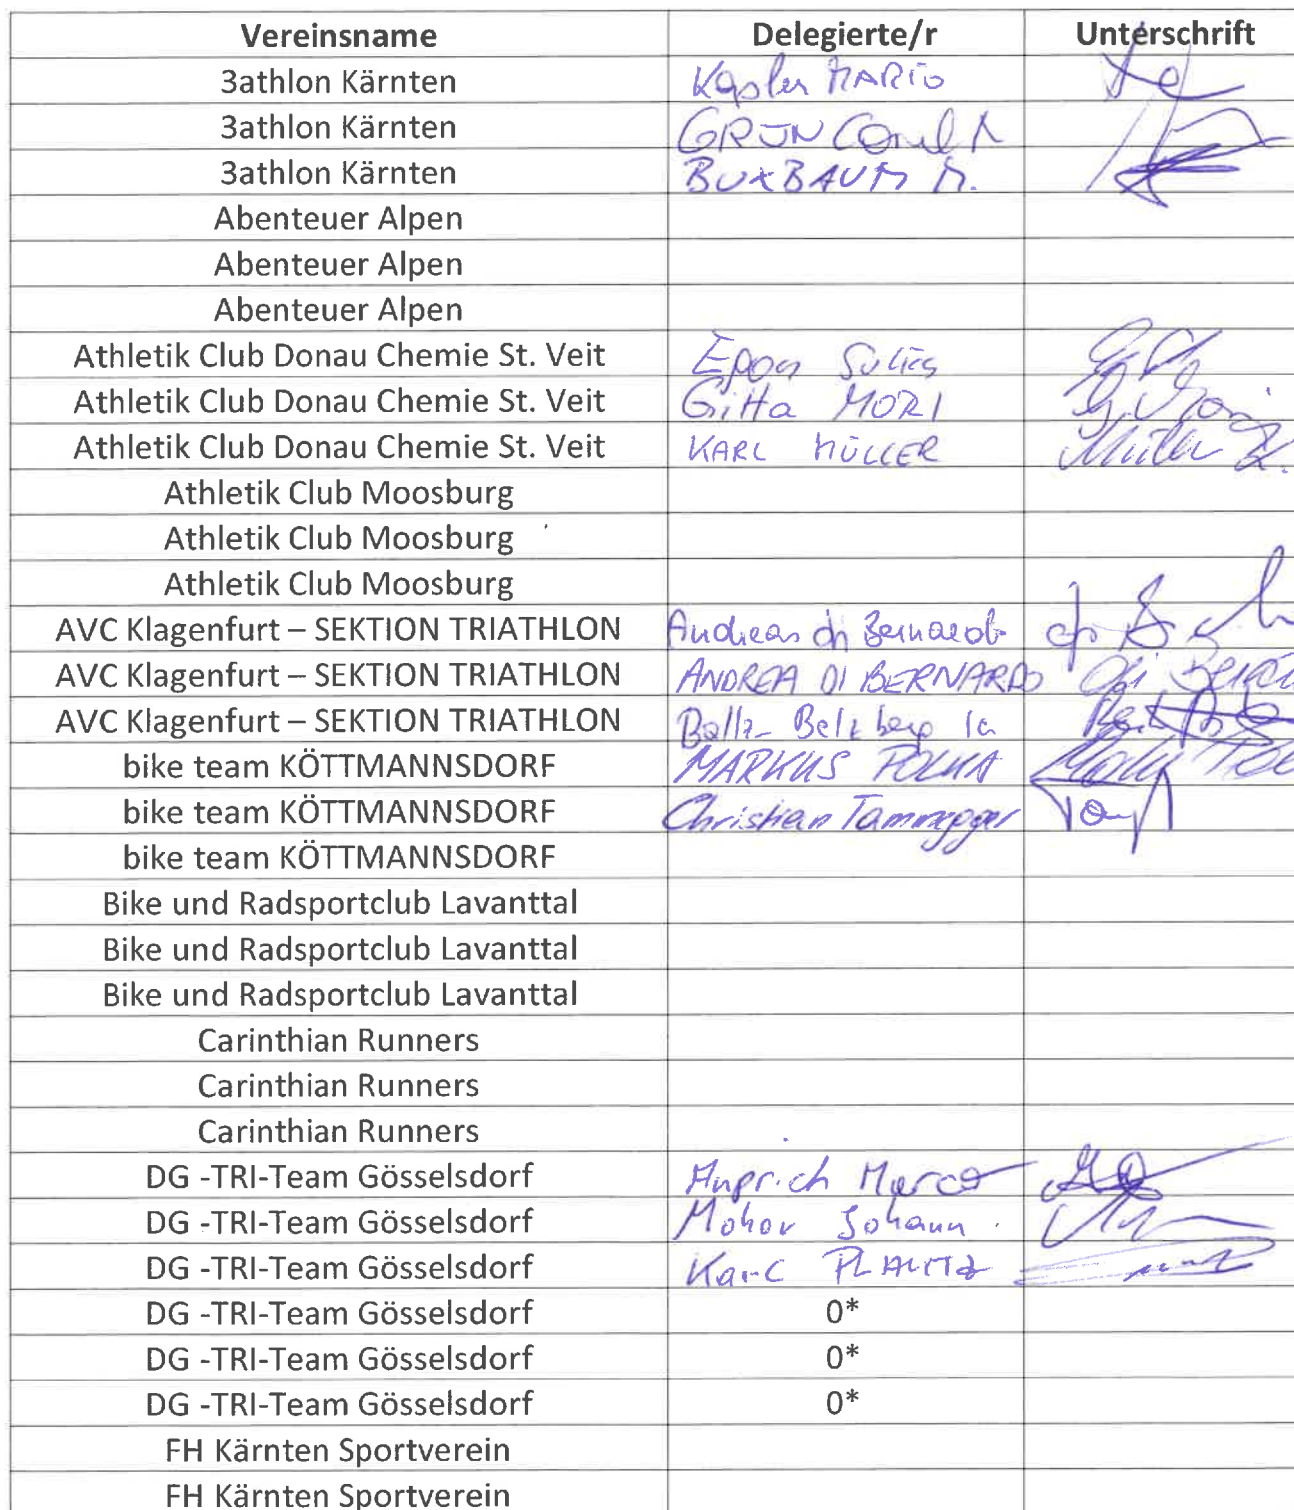 Vereinsname Delegierte/r Unterschrift
3athlon Kärnten MARIO
3athlon Kärnten GRÜN
3athlon Kärnten BUXBAUM M.
Abenteuer Alpen
Abenteuer Alpen
Abenteuer Alpen
Athletik Club Donau Chemie St. Veit
Athletik Club Donau Chemie St. Veit Gitta MORI
Athletik Club Donau Chemie St. Veit KARL MÜLLER Müller K.
Athletik Club Moosburg
Athletik Club Moosburg
Athletik Club Moosburg
AVC Klagenfurt – SEKTION TRIATHLON Andreas di Bernardo
AVC Klagenfurt – SEKTION TRIATHLON ANDREA DI BERNARDO
AVC Klagenfurt – SEKTION TRIATHLON
bike team KÖTTMANNSDORF MARKUS
bike team KÖTTMANNSDORF Christian Tamegger
bike team KÖTTMANNSDORF
Bike und Radsportclub Lavanttal
Bike und Radsportclub Lavanttal
Bike und Radsportclub Lavanttal
Carinthian Runners
Carinthian Runners
Carinthian Runners
DG -TRI-Team Gösselsdorf Marco
DG -TRI-Team Gösselsdorf Johann
DG -TRI-Team Gösselsdorf
DG -TRI-Team Gösselsdorf 0*
DG -TRI-Team Gösselsdorf 0*
DG -TRI-Team Gösselsdorf 0*
FH Kärnten Sportverein
FH Kärnten Sportverein